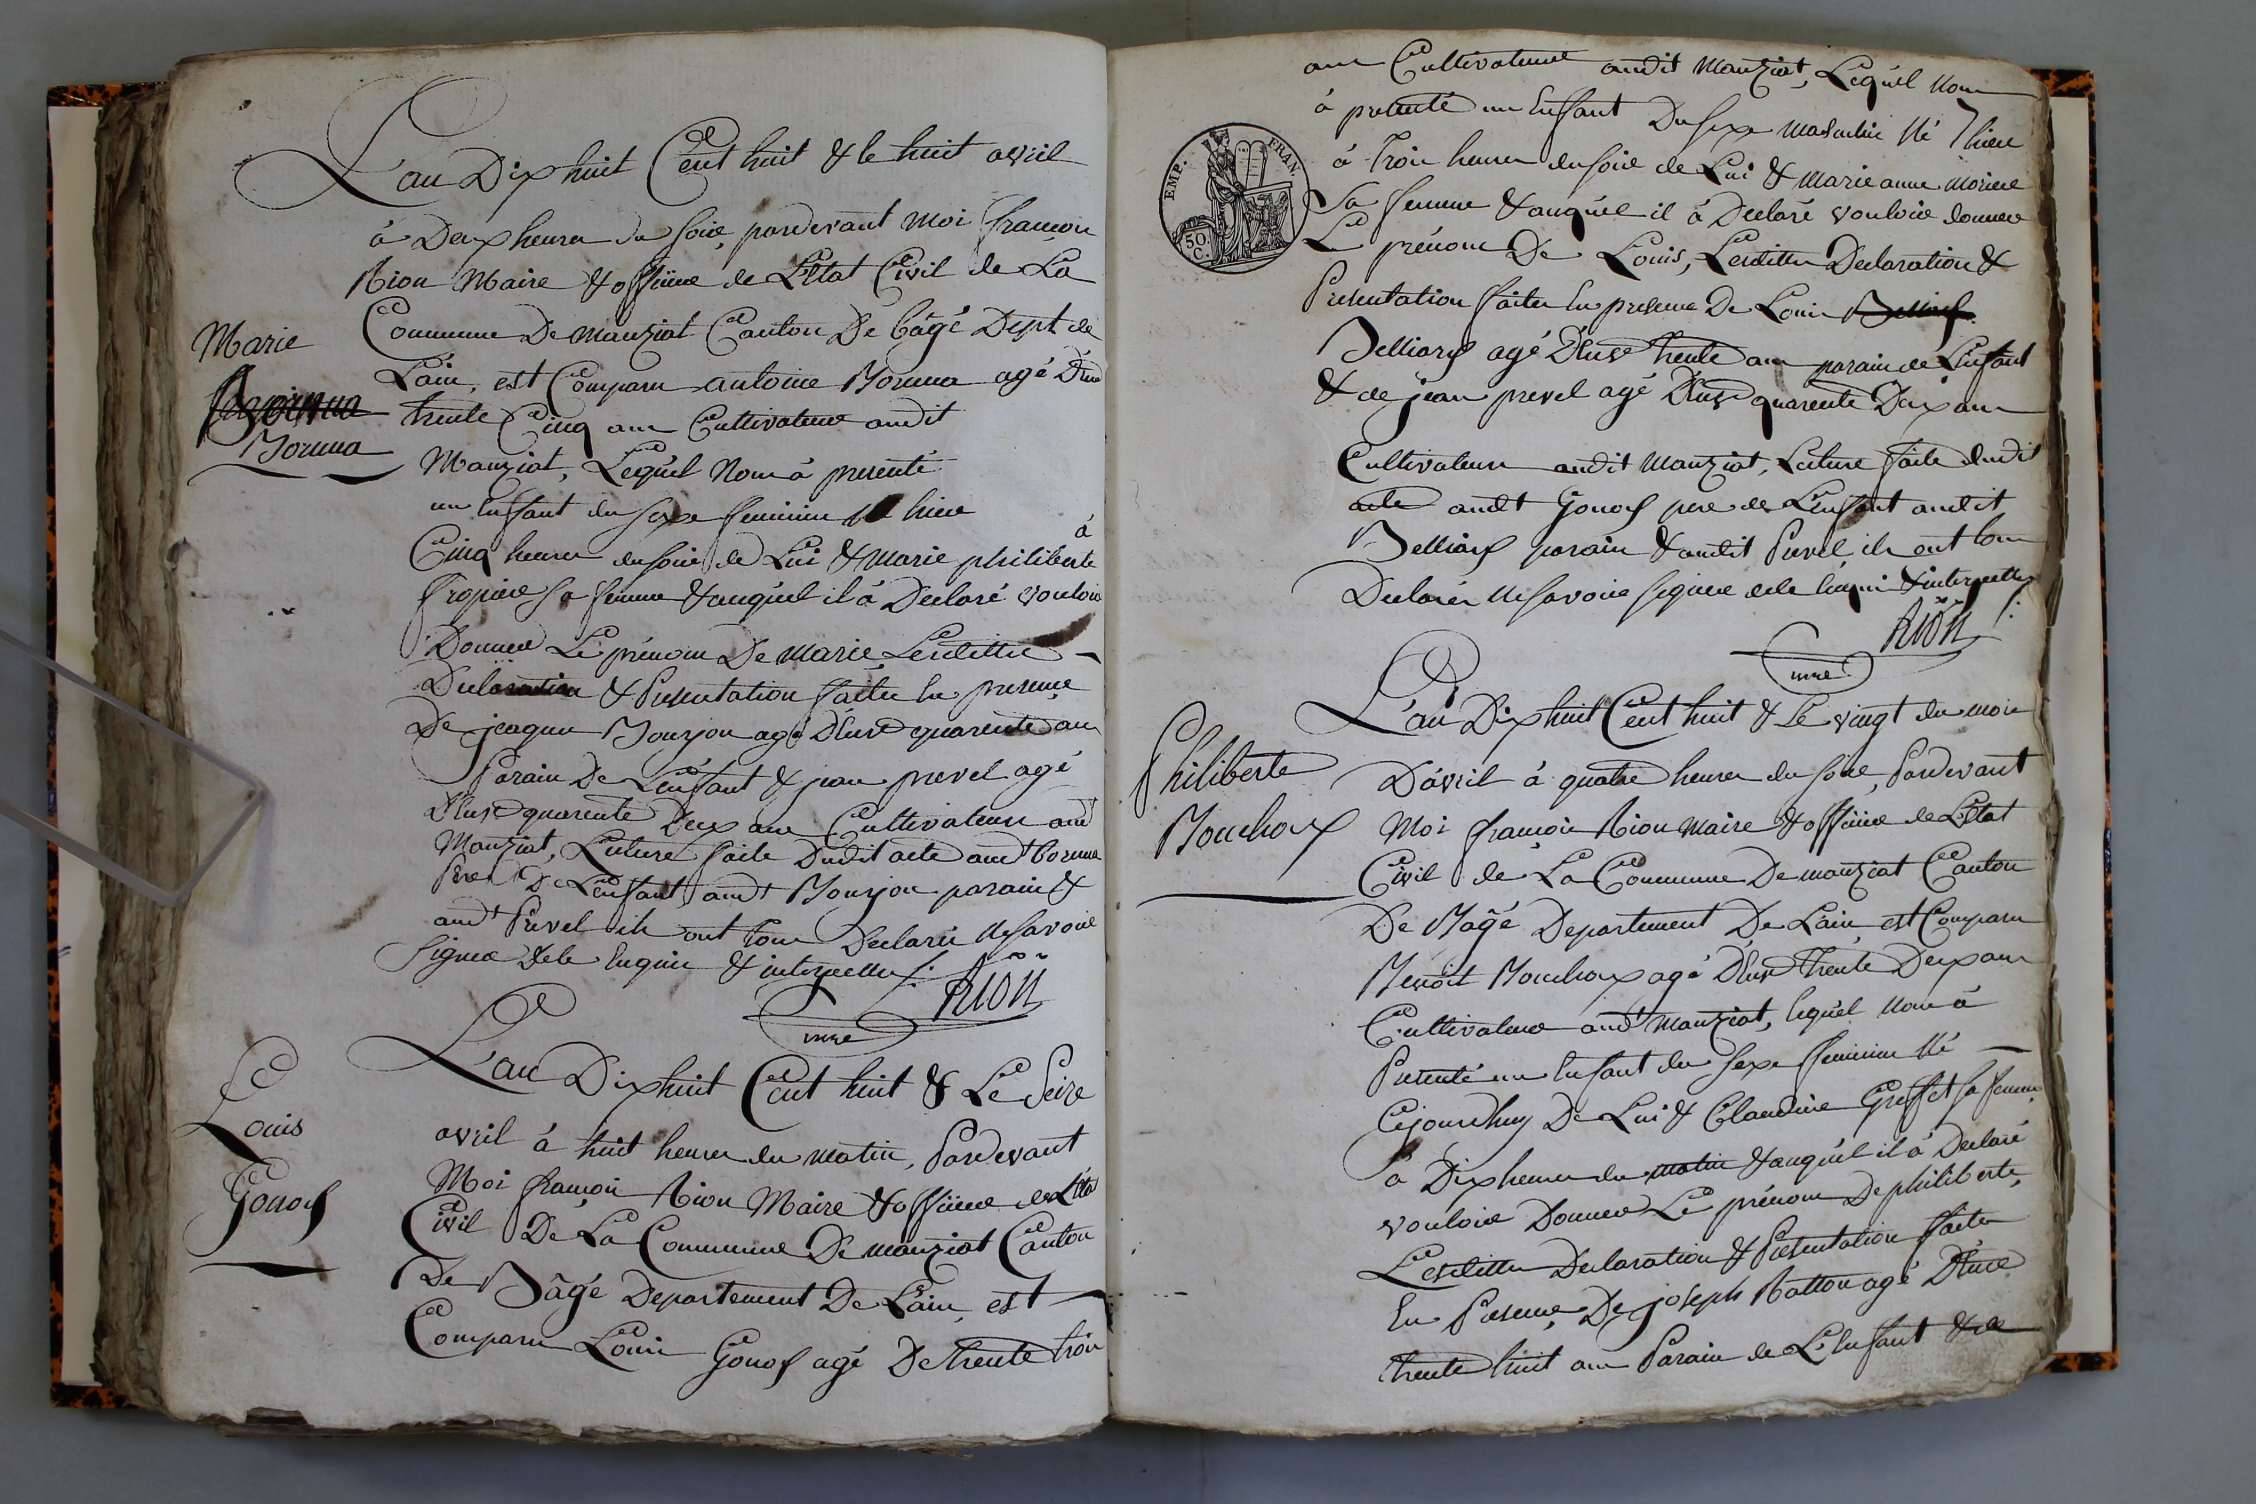 L'an Dixhuit Cent huit & le huit avril
à Deux heures du soire, pardevant moi françois
Rion Maire & officier de L'Etat Civil de La
Commune De manziat Canton De bâgé Dept de
Marie
L'ain, est Comparu antoine Borma agé D'env
Borma
trente Cinq ans Cultivateur audit
Manziat, Lequel Nous à presenté
un Enfant du sexe feminin né hier
à
Cinq heures du soire de Lui & Marie philiberte
sa femme & auquel il à Declaré vouloir
Donner Le prénom De marie, Lesdittes
Declaration & Presentation faites En presence
De jeaques Bourjon agé D'env quarente ans
Parain De L'enfant & jean prevel agé
D'env quarente Deux ans Cultivateurs aud
Manziat, Lecture faite Dudit acte audt borma
Pere De L'enfant, audt Bourjon parain &
audt Prevel ils ont tous Declarés Ne savoir
signer De le Enquis & interpellés
Rion
mre
Louis
Gonod
L'an Dixhuit Cent huit & Le Seize
avril à huit heures du matin, Pardevant
Moi françois Rion Maire & officier de L'Etat
Civil De La Commune De manziat Canton
De Bâgé Departement De L'ain, est
Comparu Louis Gonod agé De trente trois
ans Cultivateur audit Manziat, Lequel Nous
à presenté un Enfant Du sexe masculin Né hier
EMP. FRAN.
50. C.
à trois heures du soire de Lui & marie anne moriere
Sa femme & auquel il à Declaré vouloir donner
Le prénom De Louis, Lesdittes Declaration &
Presentation faites En presence De Louis
Belliard agé D'env trente ans parain de L'enfant
& de jean prevel agé D'env quarente Deux ans
Cultivateurs audit Manziat, Lecture faite dudit
acte audt Gonod pere de L'enfant audit
Belliard parain & audit Prevel ils ont tous
Declarés Ne savoir signer de le Enquis & interpellés
Rion
mre
Philiberte
Bouchoux
L'an Dixhuit Cent huit & Le vingt du mois
D'avril à quatre heures du soire, Pardevant
Moi françois Rion maire & officier de L'Etat
Civil de La Commune De manziat Canton
De Bâgé Departement De L'ain, est Comparu
Benoit Bouchoux agé D'env trente Deux ans
Cultivateur audt Manziat, lequel nous à
Presenté un Enfant du sexe feminin Né
Cejourdhuy De Lui & Claudine Greffet sa femme
à Dix heures du matin & auquel il à Declaré
vouloir Donner Le prénom De philiberte,
Lesdittes Declaration & Presentation faites
En Presence De joseph Ratton agé D'env
trente huit ans Parain de L'Enfant & de